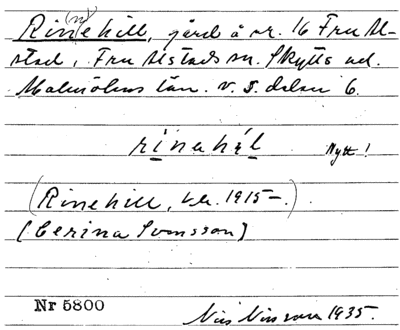 Rin(n)ehill, gård å nr. 16 Fru Al-
stad, Fru Alstads sn. Skytts hd.
Malmöhus län. v. S. delen 6.
rinahil Nytt!
(Rinehill, 1915-.)
[Cerina Svensson]
Nr 5800 Nils Nilsson 1935.